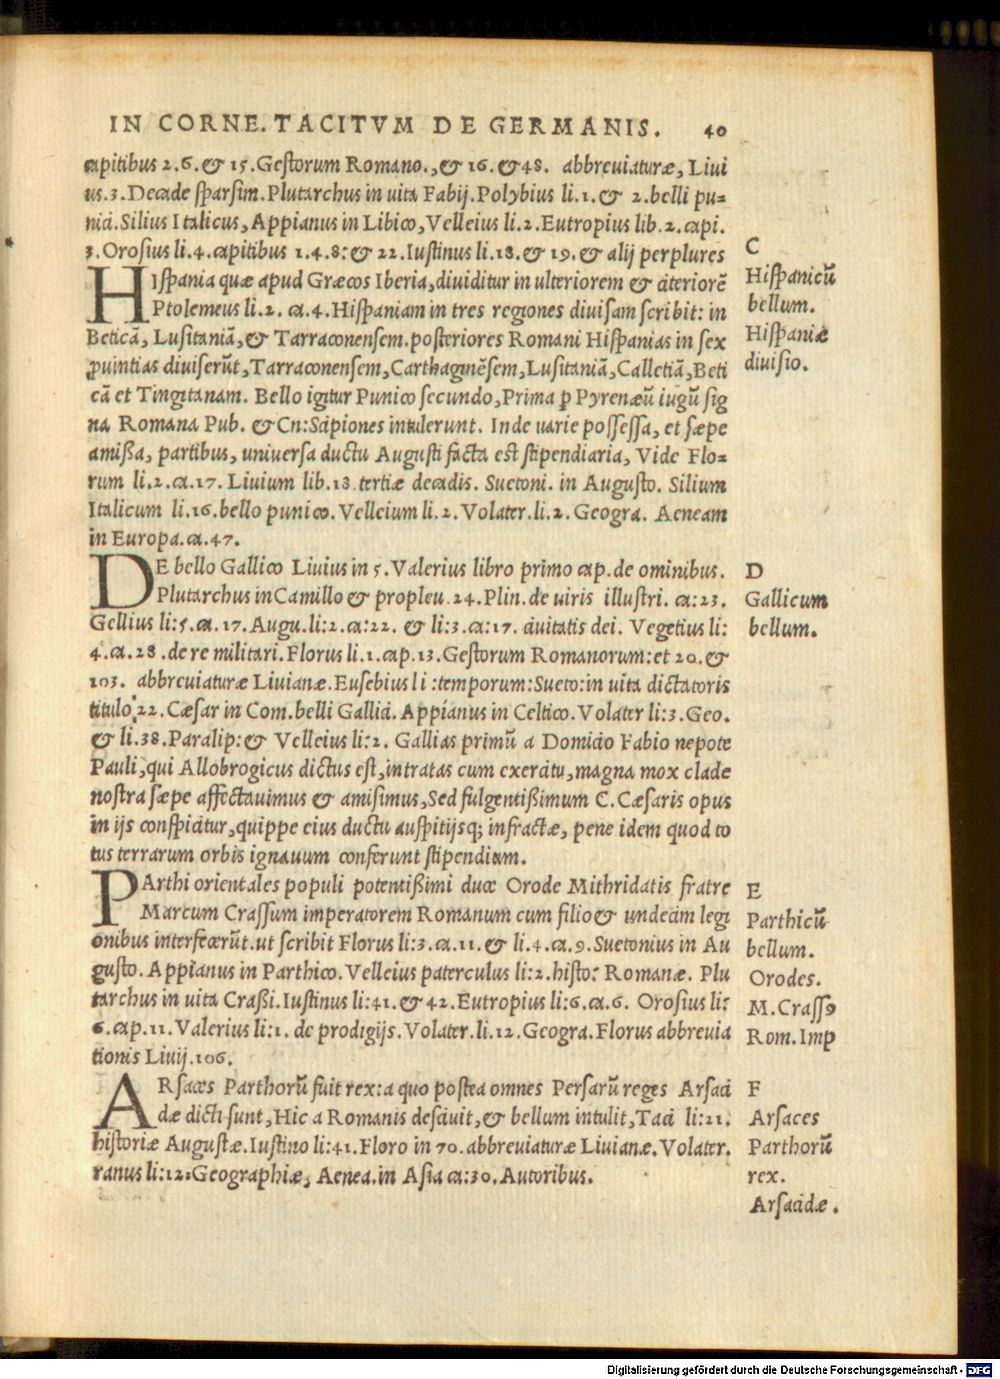 IN CORNE. TACITVM DE GERMANIS. 40
capitibus 2.6.& 15.Gestorum Romano.,& 16. &48. abbreuiaturæ, Liui
us.3.Decade sparsim.Plutarchus in uita Fabij.Polybius li.1.& 2.belli pu=
nici.Silius Italicus, Appianus in Libico, Velleius li.2.Eutropius lib.2.capi.
3.Orosius li.4.capitibus 1.4.8:& 22.Iustinus li.18.& 19.& alij perplures
HIspania quæ apud Græcos Iberia,diuiditur in ulteriorem & citeriorē
Ptolemeus li.2. ca.4.Hispaniam in tres regiones diuisam scribit: in
Beticā, Lusitaniā,& Tarraconensem.posteriores Romani Hispanias in sex
ꝓuintias diuiserūt,Tarraconensem,Carthaginēsem,Lusitaniā,Calletiā,Beti
cā et Tingitanam. Bello igitur Punico secundo,Prima ꝑ Pyrenæū iugū sig
na Romana Pub. &Cn:Scipiones intulerunt. Inde uarie possessa, et sæpe
amißa, partibus, uniuersa ductu Augusti facta est stipendiaria, Vide Flo=
rum li.2.ca.17. Liuium lib.18.tertiæ decadis. Suetoni. in Augusto. Silium
Italicum li.16.bello punico.Velleium li.2.Volater.li.2.Geogra. Aeneam
in Europa.ca.47.
DE bello Gallico Liuius in 5.Valerius libro primo cap.de ominibus.
Plutarchus in Camillo & propleu.24.Plin.de uiris illustri. ca:23.
Gellius li:5.ca.17.Augu.li:2.ca:22. & li:3.ca:17. ciuitatis dei. Vegetius li:
4.ca.28.de re militari.Florus li.1.cap.13.Gestorum Romanorum:et 20.&
103. abbreuiaturæ Liuianæ.Eusebius li:temporum:Sueto:in uita dictatoris
titulo 22.Cæsar in Com.belli Gallici.Appianus in Celtico.Volater li:3.Geo.
& li.38.Paralip:& Velleius li:2. Gallias primū a Domicio Fabio nepote
Pauli,qui Allobrogicus dictus est,intratas cum exercitu,magna mox clade
nostra sæpe affectauimus & amisimus,Sed fulgentißimum C.Cæsaris opus
in ijs conspicitur,quippe eius ductu auspitijsq; infractæ, pene idem quod to
tus terrarum orbis ignauum conferunt stipendium.
PArthi orientales populi potentißimi duce Orode Mithridatis fratre
Marcum Crassum imperatorem Romanum cum filio & undecim legi
onibus interfecerūt.ut scribit Florus li:3.ca.11.& li.4.ca.9.Suetonius in Au
gusto.Appianus in Parthico.Velleius paterculus li:2.histo: Romanæ. Plu
tarchus in uita Craßi.Iustinus li:41.&42.Eutropius li:6.ca.6. Orosius li:
6.cap.11.Valerius li:1. de prodigijs.Volater.li.12.Geogra.Florus abbreuia
tionis Liuij.106.
ARsaces Parthorū fuit rex:a quo postea omnes Persarū reges Arsaci
dæ dicti sunt,Hic a Romanis desciuit,& bellum intulit,Taci li:21.
historiæ Augustæ.Iustino li:41.Floro in 70.abbreuiaturæ Liuianæ.Volater.
ranus li:12:Geographiæ, Aenea.in Asia ca:30.Autoribus.
C
Hispanicū
bellum.
Hispaniæ
diuisio.
D
Gallicum
bellum.
E
Parthicū
bellum.
Orodes.
M.Crassꝰ
Rom.Imp
F
Arsaces
Parthorū
rex.
Arsacidæ.
Digitalisierung gefördert durch die Deutsche Forschungsgemeinschaft - DFG